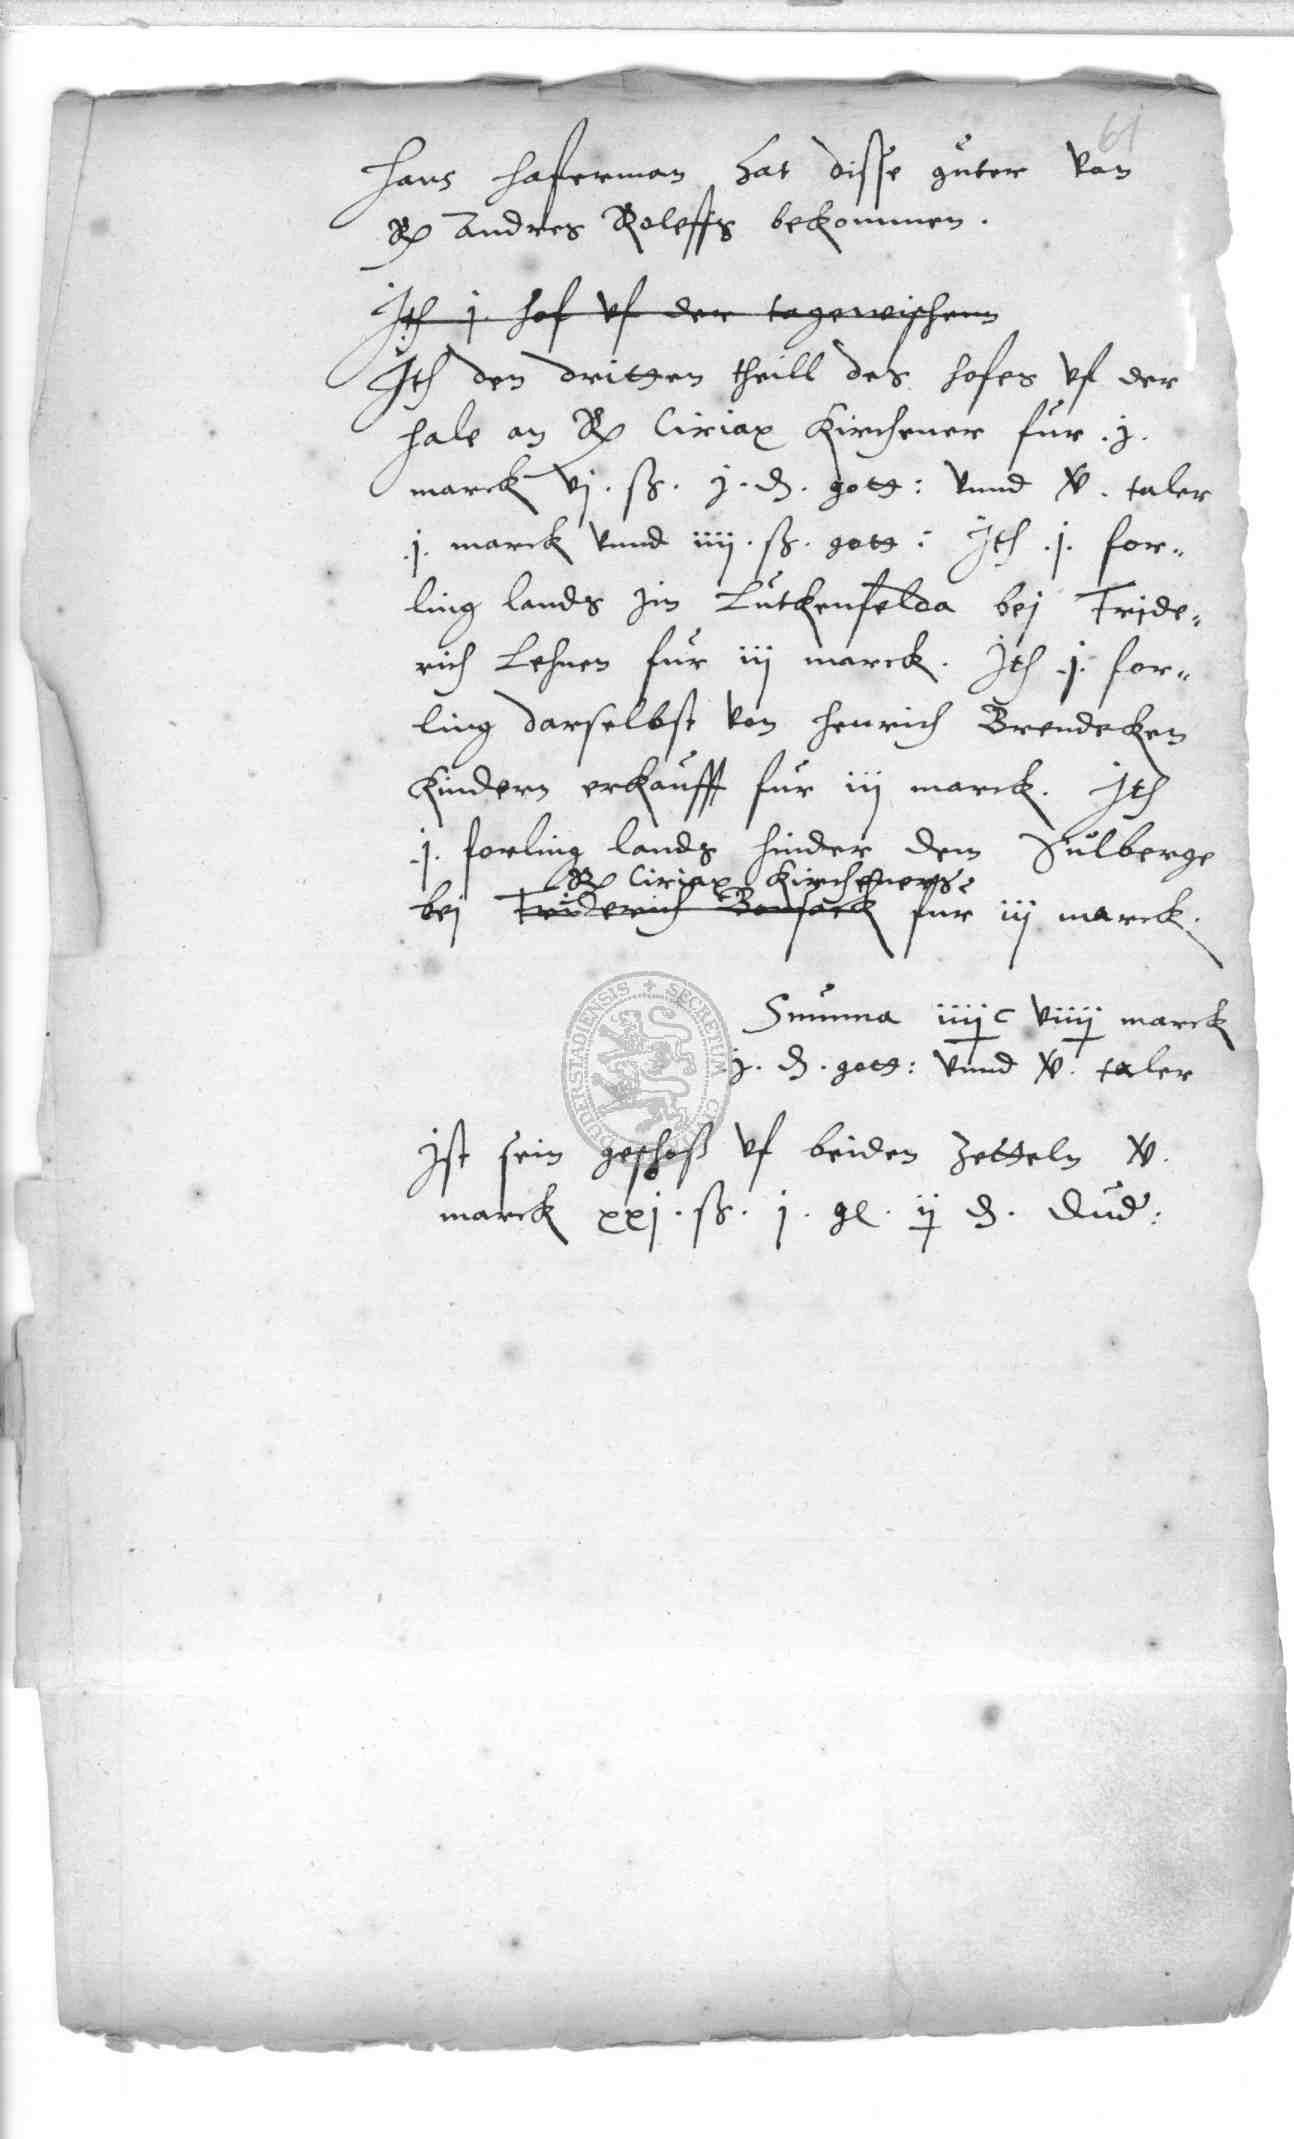 61
Hans Haferman hat disse guter von
Er Andres Roleffs bekommen.
Jth j. hof vf der tagewischenn
Jth den dritten theill des hofes vf der
hale an Er Ciriax Kirchener fur .j.
marck vj. ß. j. d. gott: vnnd xv. taler
.j. marck vnnd iiij. ß. gott: Jth .j. for-
ling lands jm Lutkenfelda bej Fride-
rich Lehnen fur iij marck. Jth .j. for-
ling darselbst von Henrich Brendecken
Kindern erkaufft fur iij marck. Jth
.j. forling lands hinder dem Sulberge
Er Ciriax Kircheners
bej Friderich Bonsack fur iij marck.
Summa iiij c viiij marck
j. d. gott: vnnd xv. taler
Jst sein geschoß vf beiden Zetteln xv.
marck xxj. ß. j. gl. ij d. Dud:
DUDERSTADIENSIS + SECRETUM